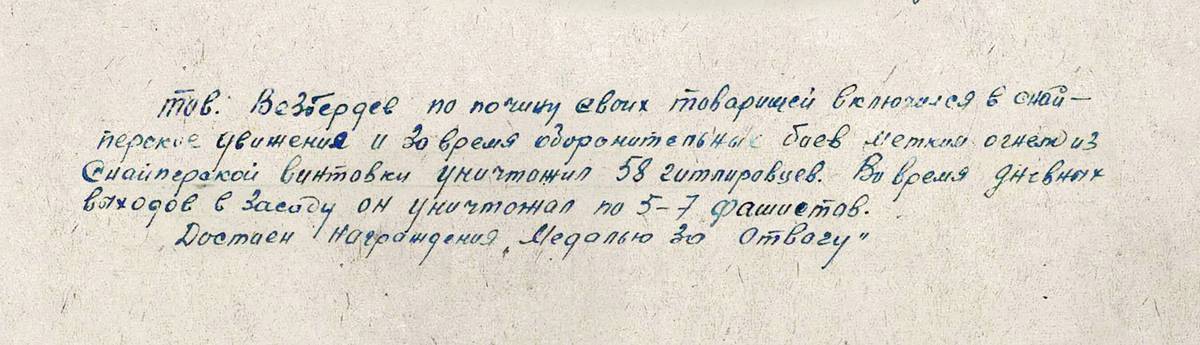 тов. Везбердев по почину своих товарищей включился в снай-
перское движения и за время оборонительные боев метким огнем из
Снайперской винтовки уничтожил 58 гитлировцев. Во время дневных
выходов в засаду он уничтожал по 5-7 фашистов.
Достоен награждения „Медалью За Отвагу"